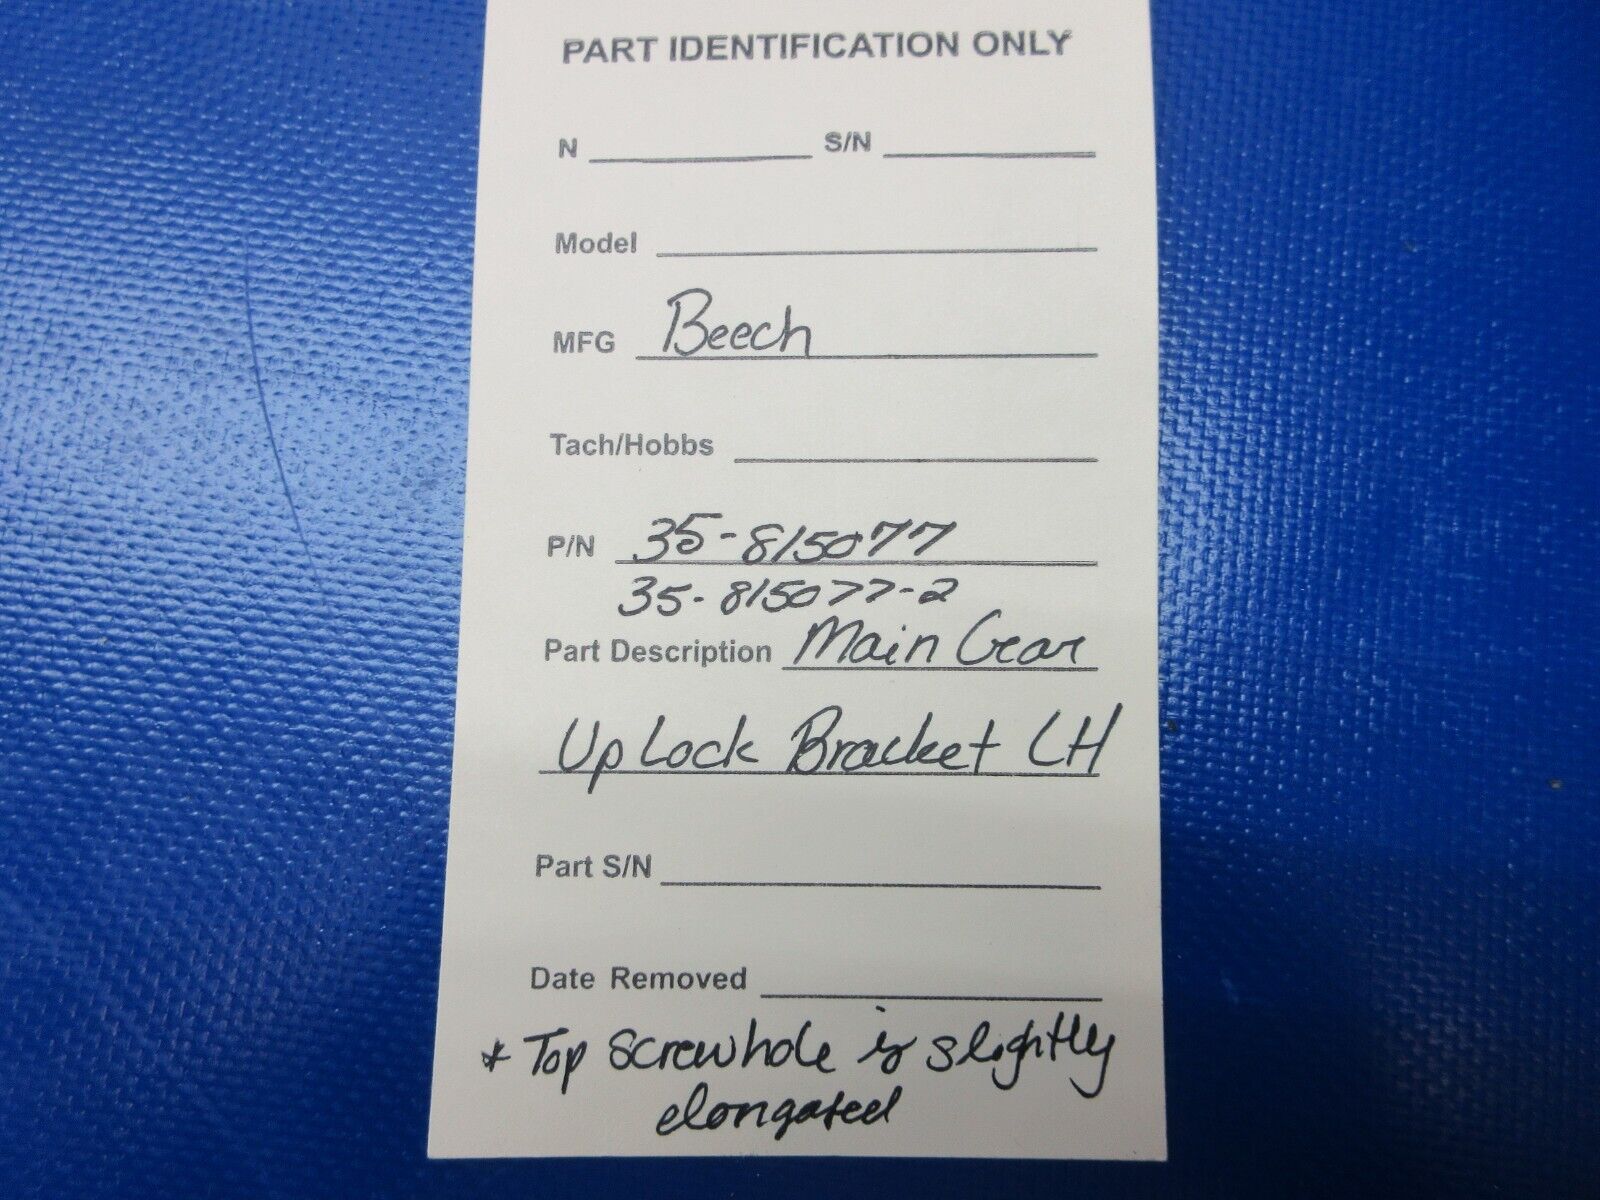 PART IDENTIFICATION ONLY
N S/N
Model
MFG Beech
Tach/Hobbs
P/N 35-815077
35-815077-2
Part Description Main Gear
Up Lock Bracket LH
Part S/N
Date Removed
* Top screwhole is slightly
elongated